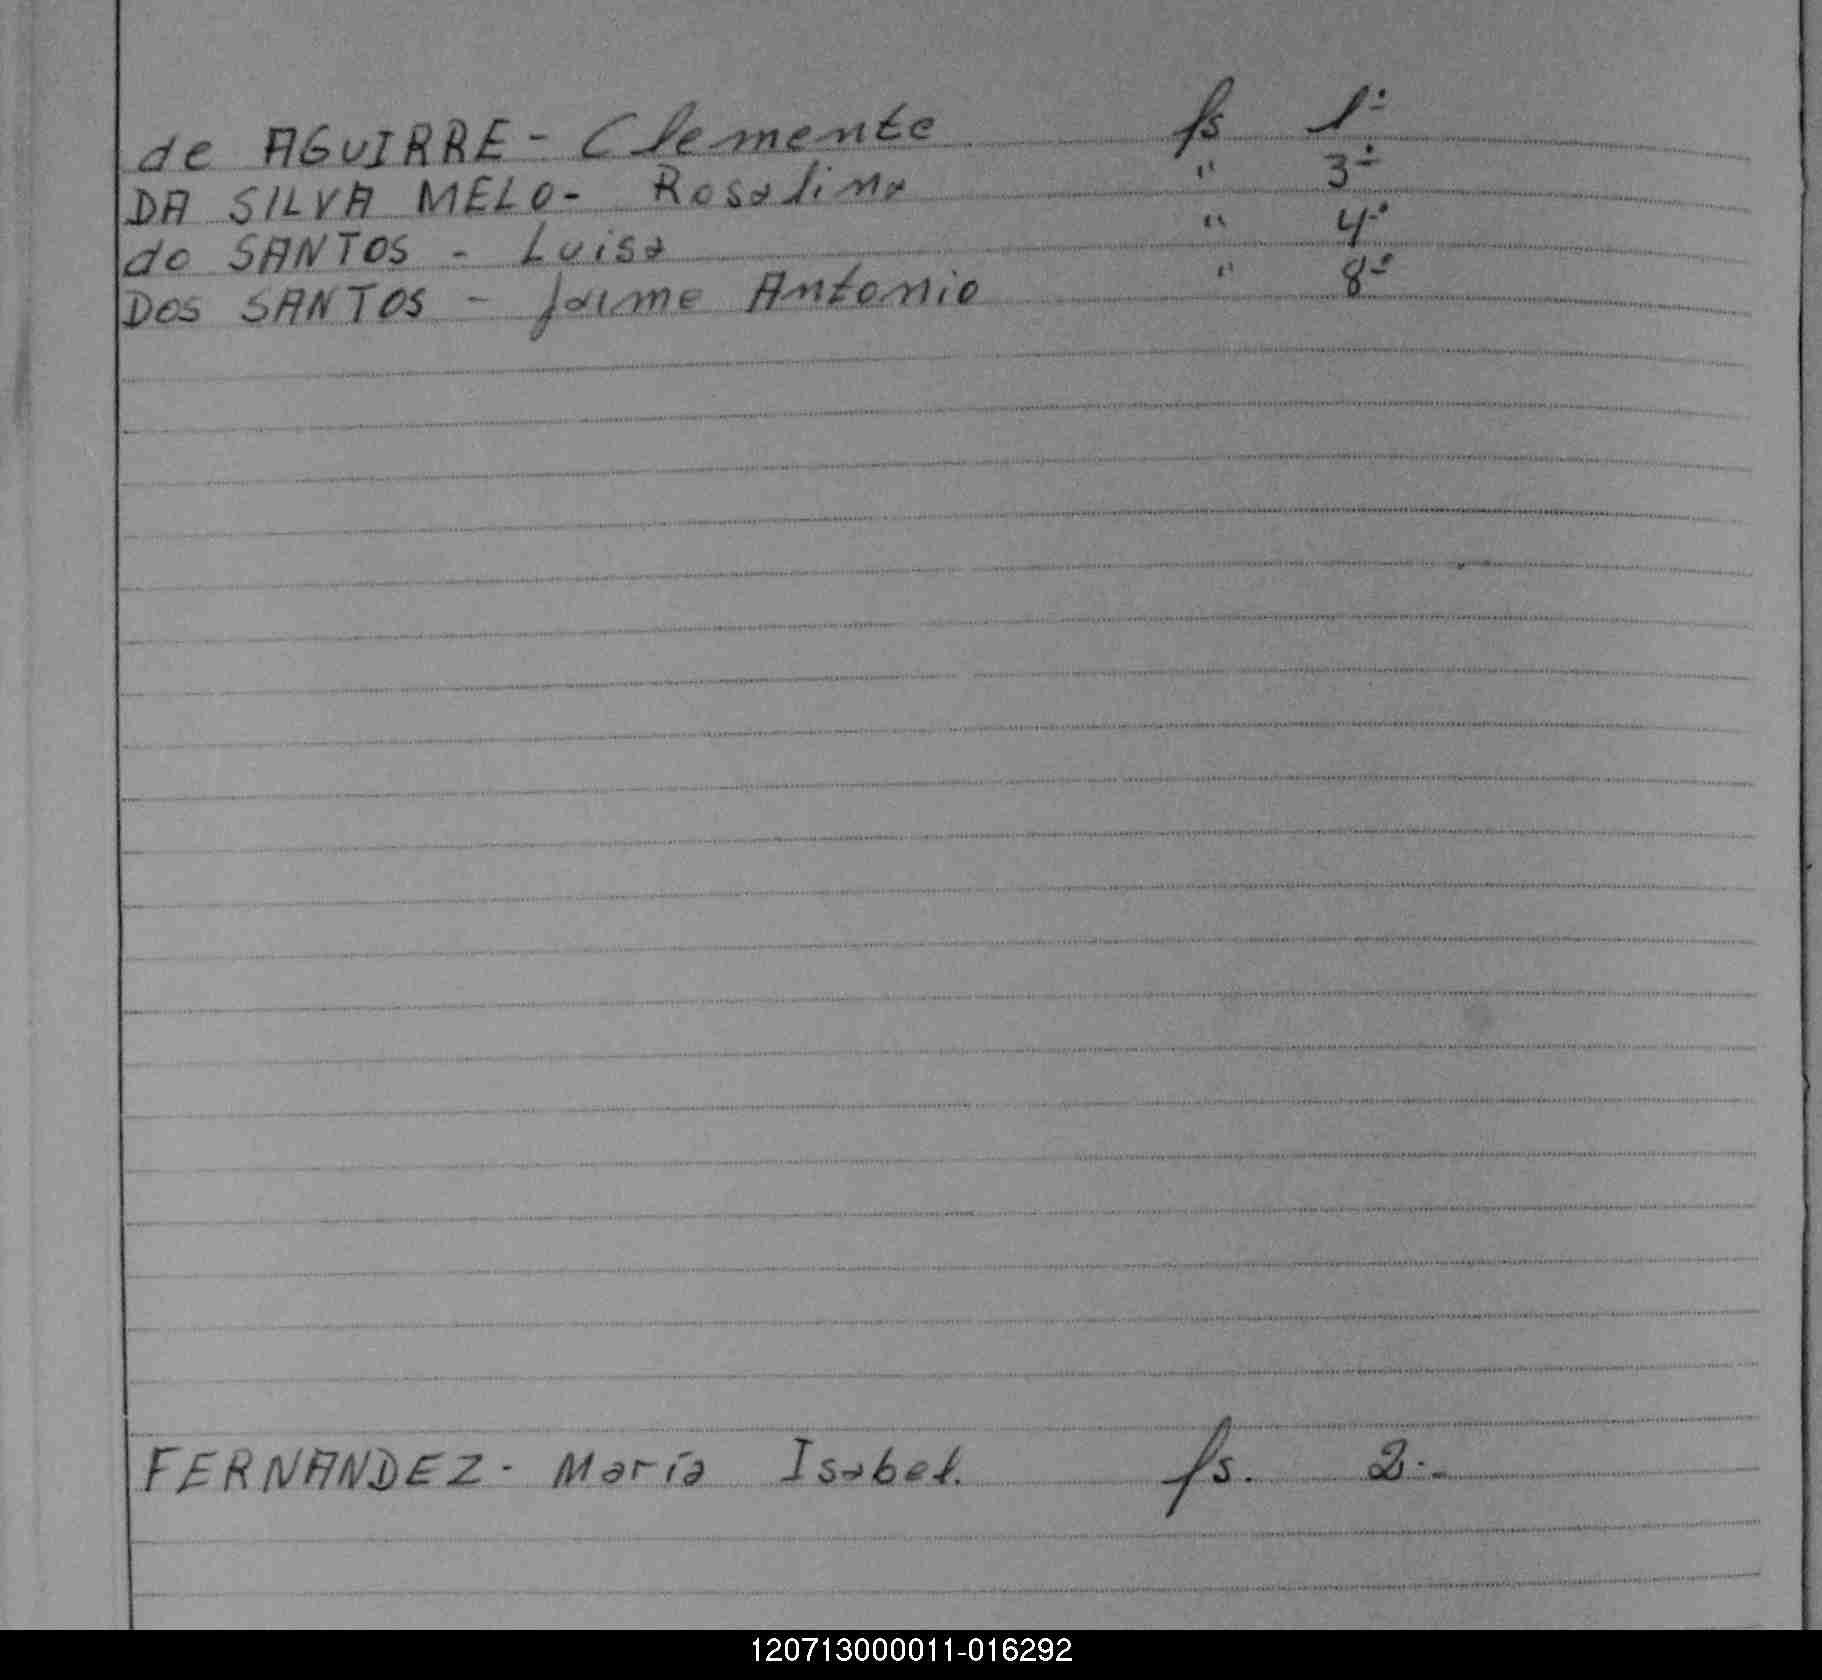 de AGUIRRE - Clemente fs 1-
DA SILVA MELO - Rosalina " 3-
do SANTOS - Luisa " 4-
DOS SANTOS - Jaime Antonio " 8-
FERNANDEZ - María Isabel. fs. 2.-
120713000011-016292